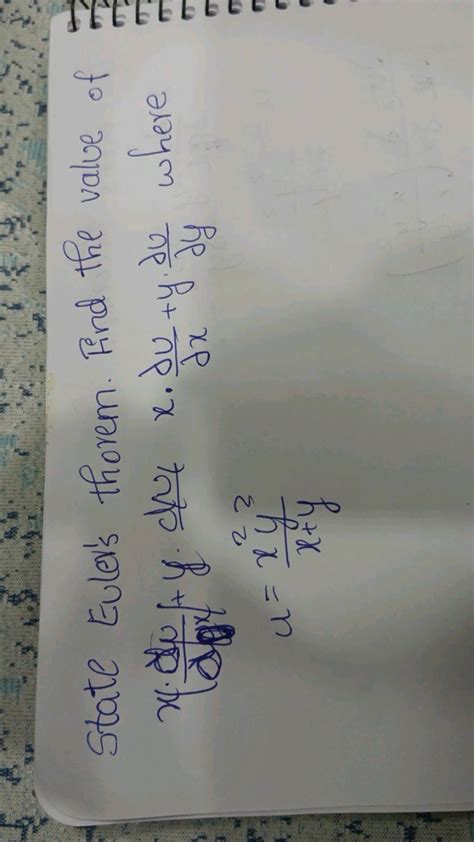 State Euler's thorem. Find the value of
x · ∂u/∂x + y · ∂u/∂y where
u = x²y³/x+y